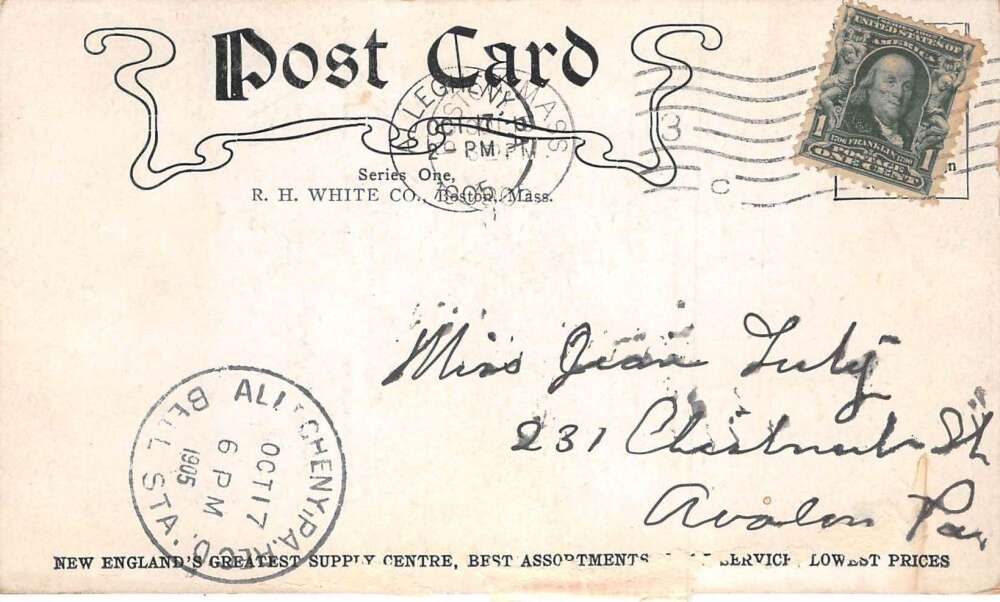 Post Card
Series One,
R. H. WHITE CO., Boston, Mass.
ALLEGHENY
MASS
OCT 17
2 PM PM
1905
3
C
UNITED STATES OF
AMERICA
1706 FRANKLIN 1790
1 POSTAGE 1
ONE CENT
Miss Jean Tuly
231 Chestnut St
Avalon Pa
ALL CHENY, PA. REC'D.
OCT 17
6 PM
1905
BELL STA.
NEW ENGLAND'S GREATEST SUPPLY CENTRE, BEST ASSORTMENTS SERVICE LOWEST PRICES